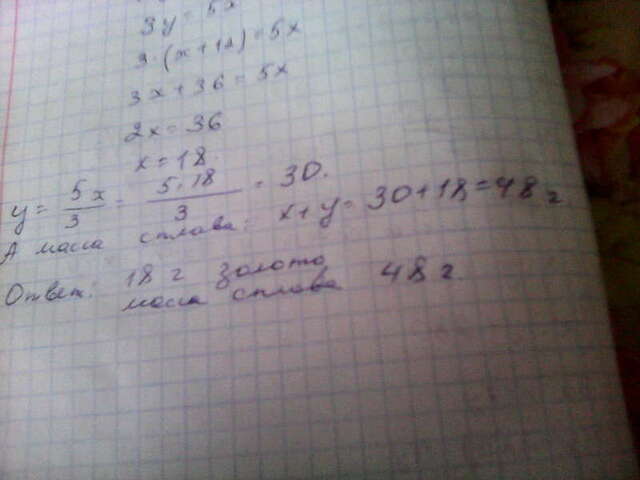 3y = 5x
3·(x+12)=5x
3x+36=5x
2x=36
x=18.
y = 5x/3 = 5·18/3 = 30.
А масса сплава: x+y=30+18=48 г
Ответ: 18 г золота
масса сплава 48 г